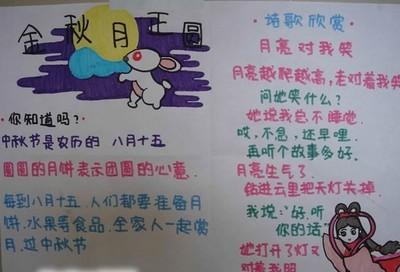 金秋月正圆
·你知道吗?·
中秋节是农历的 八月十五
圆圆的月饼表示团圆的心意.
每到八月十五.人们都要准备月
饼.水果等食品.全家人一起赏
月.过中秋节
·诗歌欣赏·
月亮对我笑
月亮越爬越高,老对着我笑
问她笑什么?
她说我总不睡觉.
哎,不急,还早哩.
再听个故事多好.
月亮生气了.
钻进云里把天灯关掉.
我说:"好,听
你的话.
她打开了灯又
对着我明